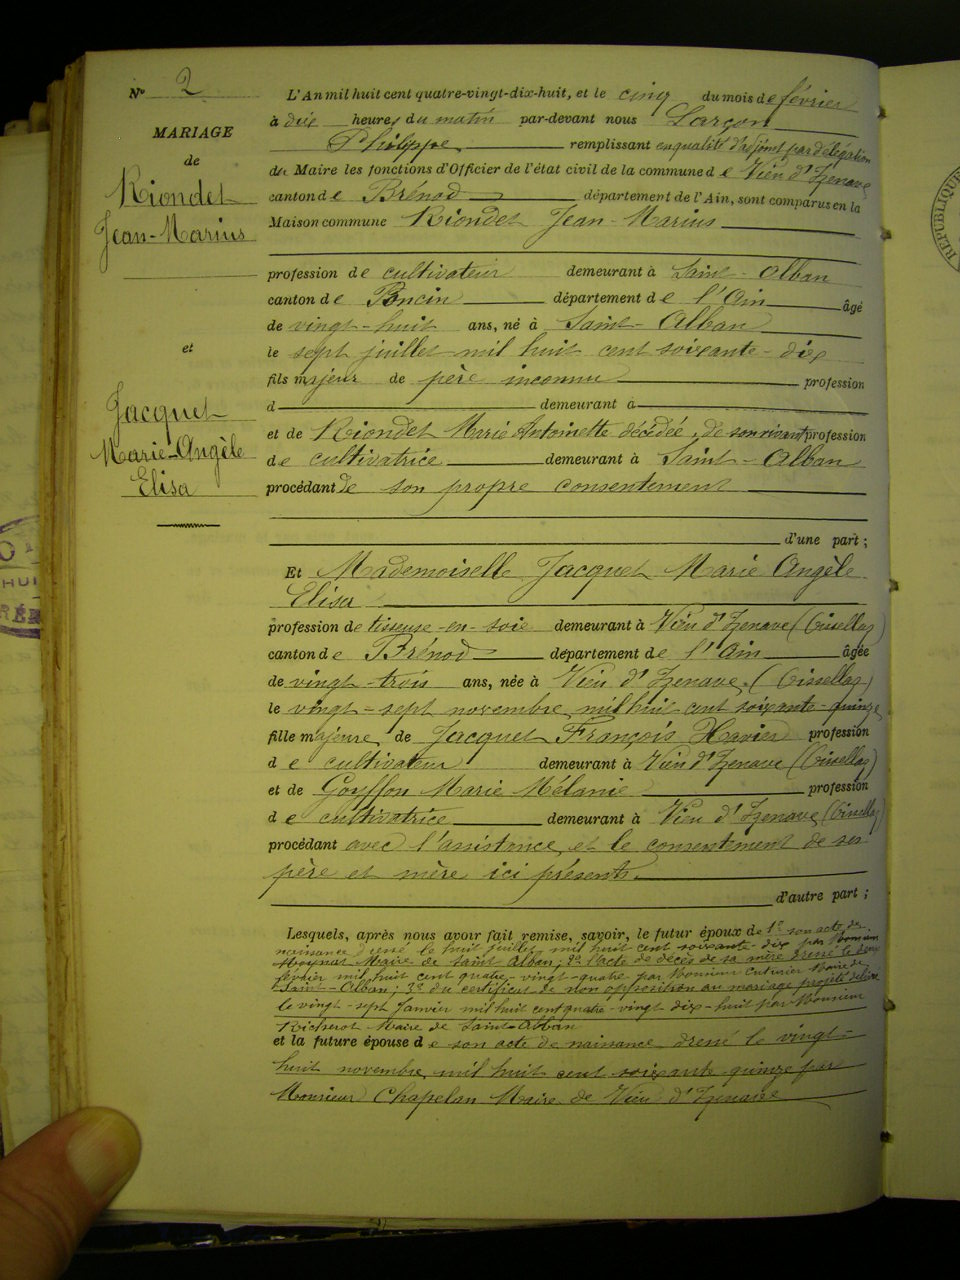 N° 2
MARIAGE
de
Riondet
Jean-Marius
et
Jacquet
Marie-Angèle
Elisa
L'An mil huit cent quatre-vingt-dix-huit, et le cinq du mois de février
à dix heures du matin par-devant nous Larçon
Philippe, remplissant en qualité d'adjoint par délégation
du Maire les fonctions d'Officier de l'état civil de la commune de Vieu d'Izenave
canton de Brénod département de l'Ain, sont comparus en la
Maison commune Riondet Jean-Marius
profession de cultivateur demeurant à Saint-Alban
canton de Poncin département de l'Ain âgé
de vingt-huit ans, né à Saint-Alban
le sept juillet mil huit cent soixante-dix
fils majeur de père inconnu profession
d demeurant à
et de Riondet Marie Antoinette décédée, de son vivant profession
de cultivatrice demeurant à Saint-Alban
procédant de son propre consentement
d'une part ;
Et Mademoiselle Jacquet Marie Angèle
Elisa
profession de tisseuse-en-soie demeurant à Vieu d'Izenave (Oisellaz)
canton de Brénod département de l'Ain âgée
de vingt-trois ans, née à Vieu d'Izenave (Oisellaz)
le vingt-sept novembre mil huit cent soixante-quinze
fille majeure, de Jacquet François Xavier profession
de cultivateur demeurant à Vieu d'Izenave (Oisellaz)
et de Goyffon Marie Mélanie profession
de cultivatrice demeurant à Vieu d'Izenave (Oisellaz)
procédant avec l'assistance et le consentement de ses
père et mère ici présents.
d'autre part ;
Lesquels, après nous avoir fait remise, savoir, le futur époux de 1° son acte de
naissance dressé le huit juillet mil huit cent soixante-dix par
Maire de Saint Alban ; 2° l'acte de décès de sa mère dressé le deux
février mil huit cent quatre-vingt-quatre par Monsieur Maire de
Saint-Alban ; 3° du certificat de non opposition au mariage projeté délivré
le vingt-sept Janvier mil huit cent quatre-vingt dix-huit par Monsieur
Richerot Maire de Saint-Alban
et la future épouse de son acte de naissance dressé le vingt-
huit novembre mil huit cent soixante quinze par
Monsieur Chapelan Maire de Vieu d'Izenave
RÉPUBLIQUE